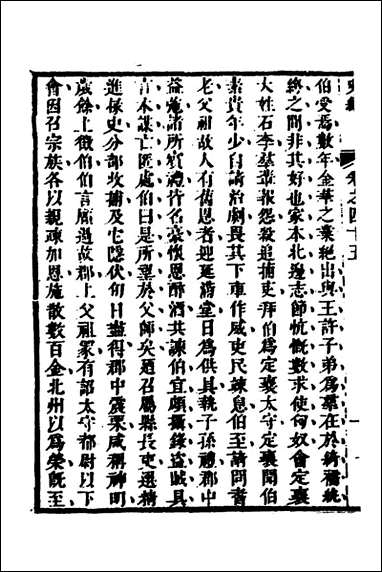 伯受焉數年金華之業絕出與王許子弟為羣在於綺襦紈
絝之間非其好也家本北邊志節忼慨數求使匈奴會定襄
大姓石李羣輩報怨殺追捕吏拜伯為定襄太守定襄聞伯
素貴年少自請治劇畏其下車作威吏民竦息伯至請問耆
老父祖故人有舊恩者迎延滿堂日為供具執子孫禮郡中
益弛諸所賓禮皆名豪懷恩醉酒共諫伯宜頗攝錄盜賊具
言本謀亡匿處伯曰是所望於父師矣迺召屬縣長吏選精
進掾史分部收捕及它隱伏旬日盡得郡中震栗咸稱神明
歲餘上徵伯伯言願過故郡上父祖冢有詔太守都尉以下
會因召宗族各以親疎加恩施散數百金北州以為榮旣至
卷之四十五